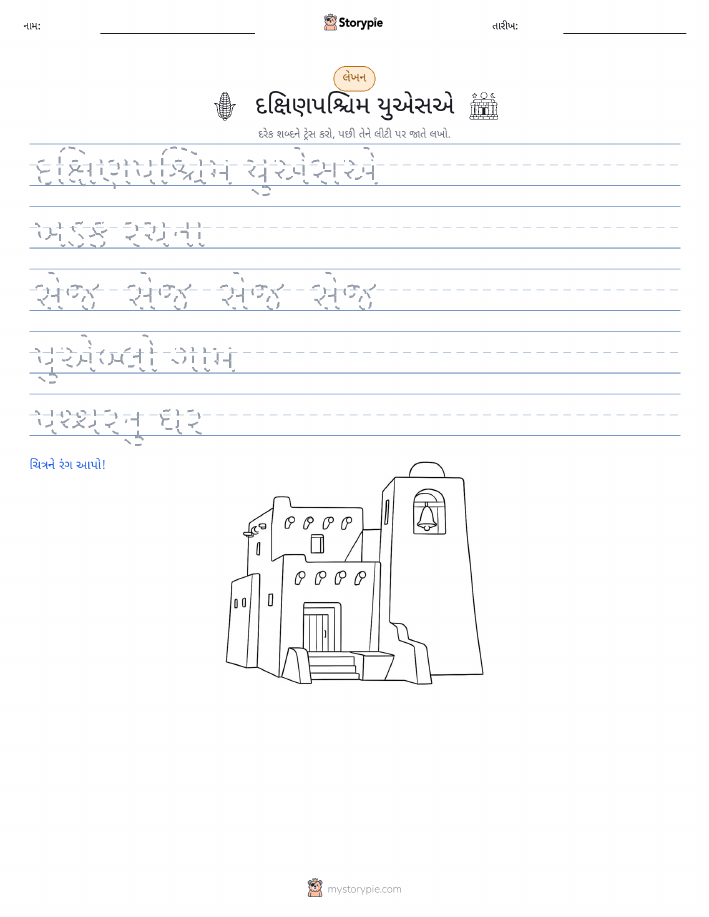 નામ:
Storypie
તારીખ:
લેખન
દક્ષિણપશ્ચિમ યુએસએ
દરેક શબ્દને ટ્રેસ કરો, પછી તેને લીટી પર જાતે લખો.
દક્ષિણપશ્ચિમ યુએસએ
ખડક રચના
સેજ સેજ સેજ સેજ
પુએબ્લો ગામ
પથ્થરનુ ઘર
ચિત્રને રંગ આપો!
mystorypie.com